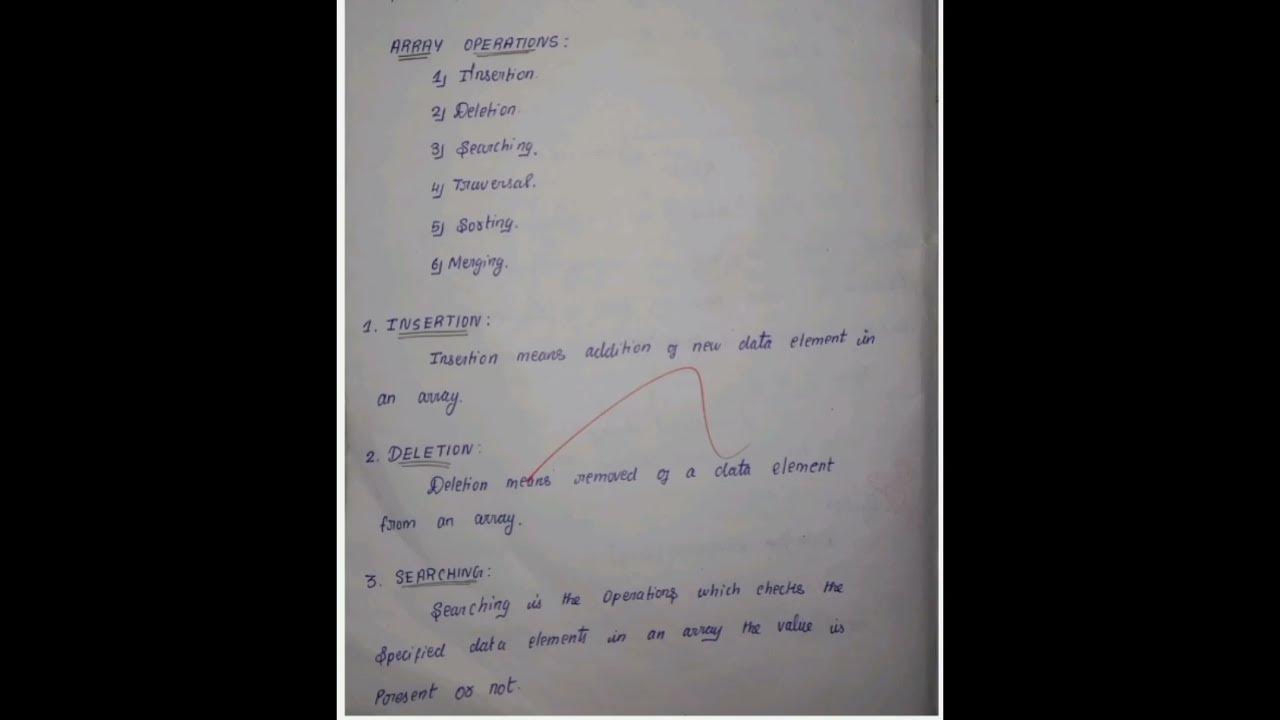 ARRAY OPERATIONS:
1) Insertion.
2) Deletion.
3) Searching.
4) Traversal.
5) Sorting.
6) Merging.
1. INSERTION:
Insertion means addition of new data element in
an array.
2. DELETION:
Deletion means removed of a data element
from an array.
3. SEARCHING:
Searching is the Operations which checks the
Specified data elements in an array the value is
Present or not.